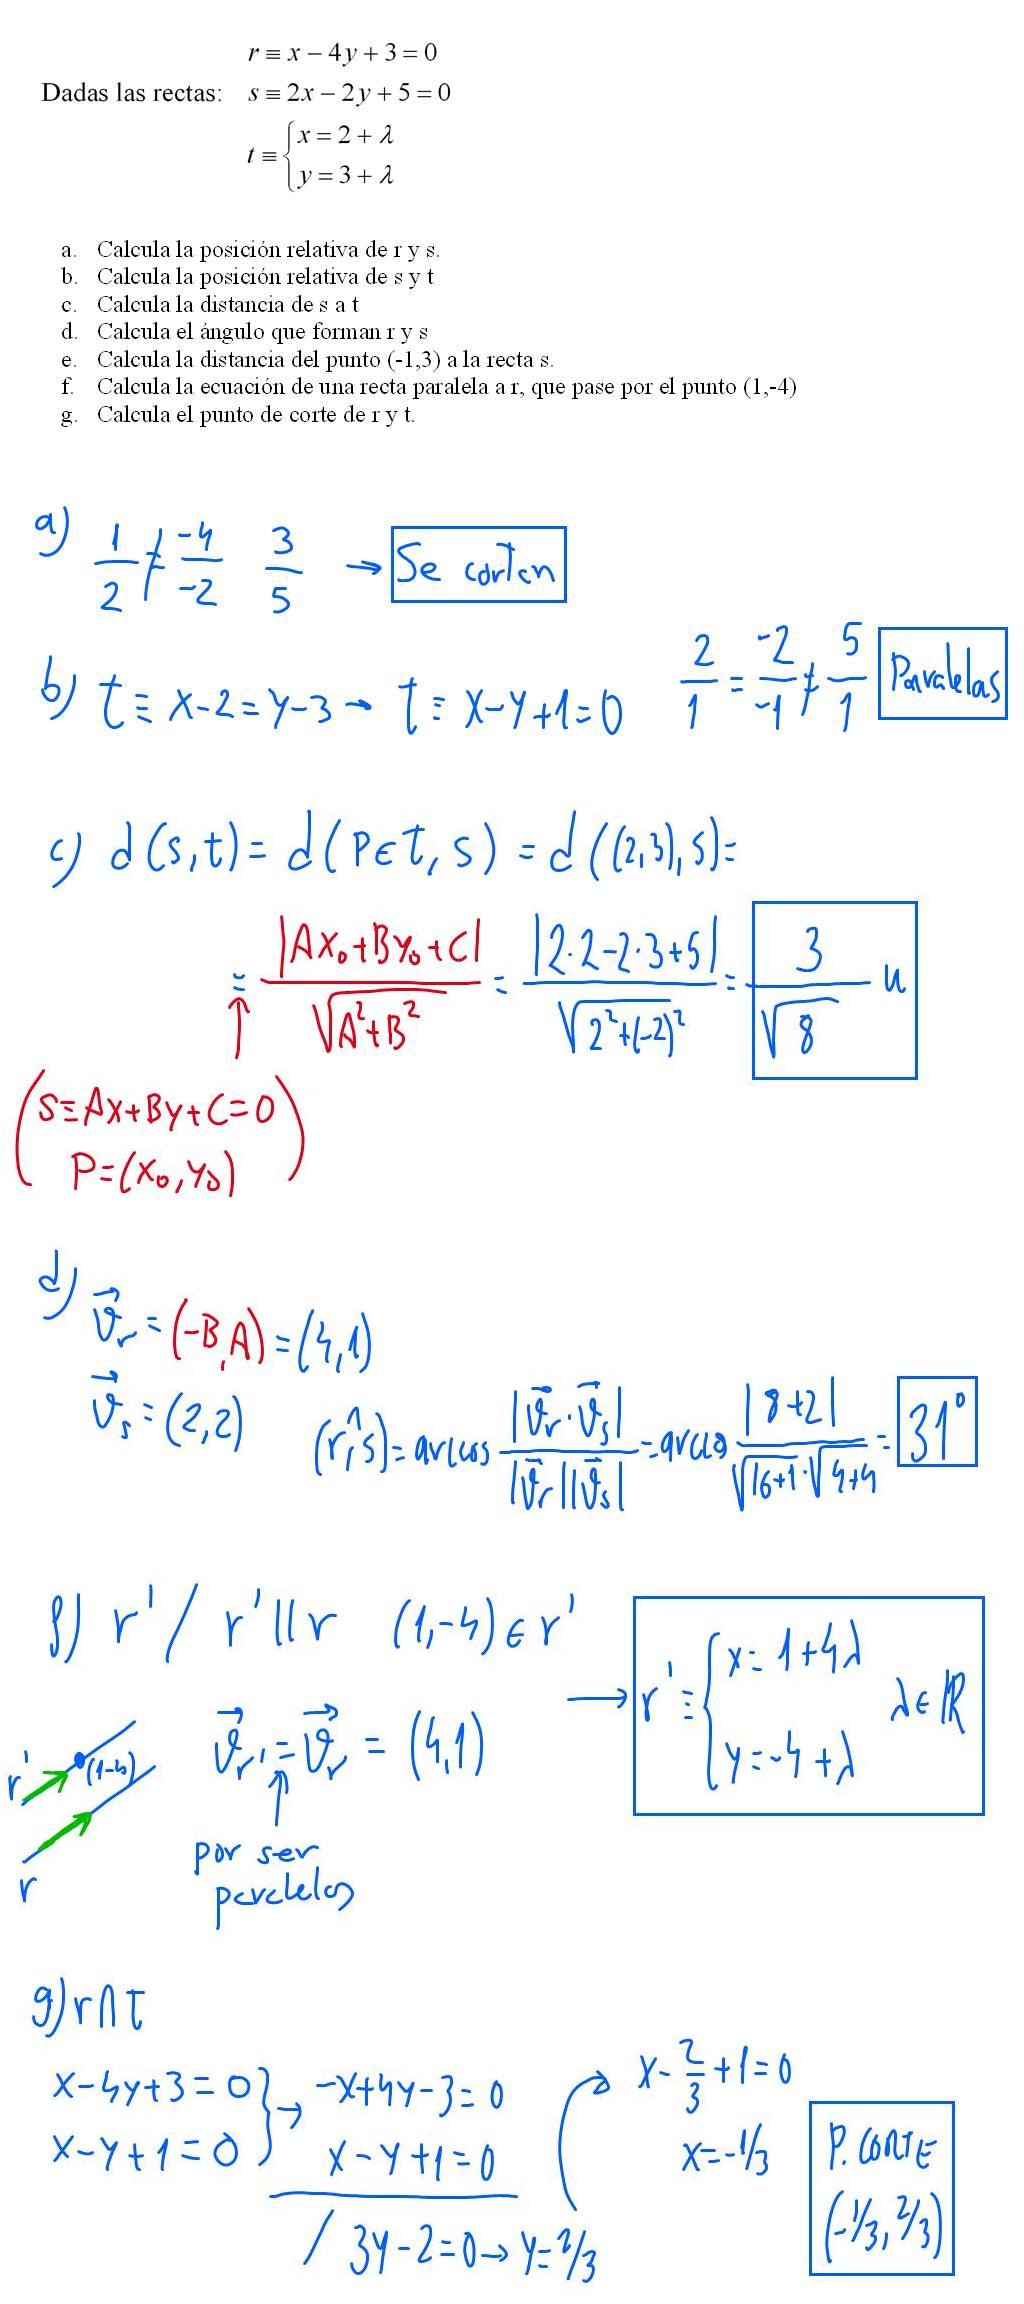 r ≡ x − 4y + 3 = 0
Dadas las rectas: s ≡ 2x − 2y + 5 = 0
t ≡ { x = 2 + λ
y = 3 + λ
a. Calcula la posición relativa de r y s.
b. Calcula la posición relativa de s y t
c. Calcula la distancia de s a t
d. Calcula el ángulo que forman r y s
e. Calcula la distancia del punto (-1,3) a la recta s.
f. Calcula la ecuación de una recta paralela a r, que pase por el punto (1,-4)
g. Calcula el punto de corte de r y t.
a) 1/2 ≠ -4/-2 3/5 → Se cortan
b) t ≡ x-2 = y-3 → t ≡ x-y+1=0 2/1 = -2/-1 ≠ 5/1 Paralelas
c) d(s,t) = d(P∈t, s) = d((2,3), s) =
= |Ax₀+By₀+C| / √(A²+B²) = |2·2-2·3+5| / √(2²+(-2)²) = 3/√8 u
↑
(s≡Ax+By+C=0
P=(x₀,y₀))
d) v⃗r = (-B,A) = (4,1)
v⃗s = (2,2) (r,^s) = arccos |v⃗r·v⃗s| / |v⃗r||v⃗s| = arccos |8+2| / √16+1·√4+4 = 31°
f) r' / r' || r (1,-4) ∈ r' → r' ≡ { x = 1+4λ
y = -4+λ λ∈ℝ
v⃗r' = v⃗r = (4,1)
↑
r' (1-4)
por ser
paralelas
r
g) r∩t
x-4y+3=0 } → -x+4y-3=0
x-y+1=0 x-y+1=0
/ 3y-2=0 → y=2/3
x-2/3+1=0
x=-1/3
P. CORTE
(-1/3, 2/3)